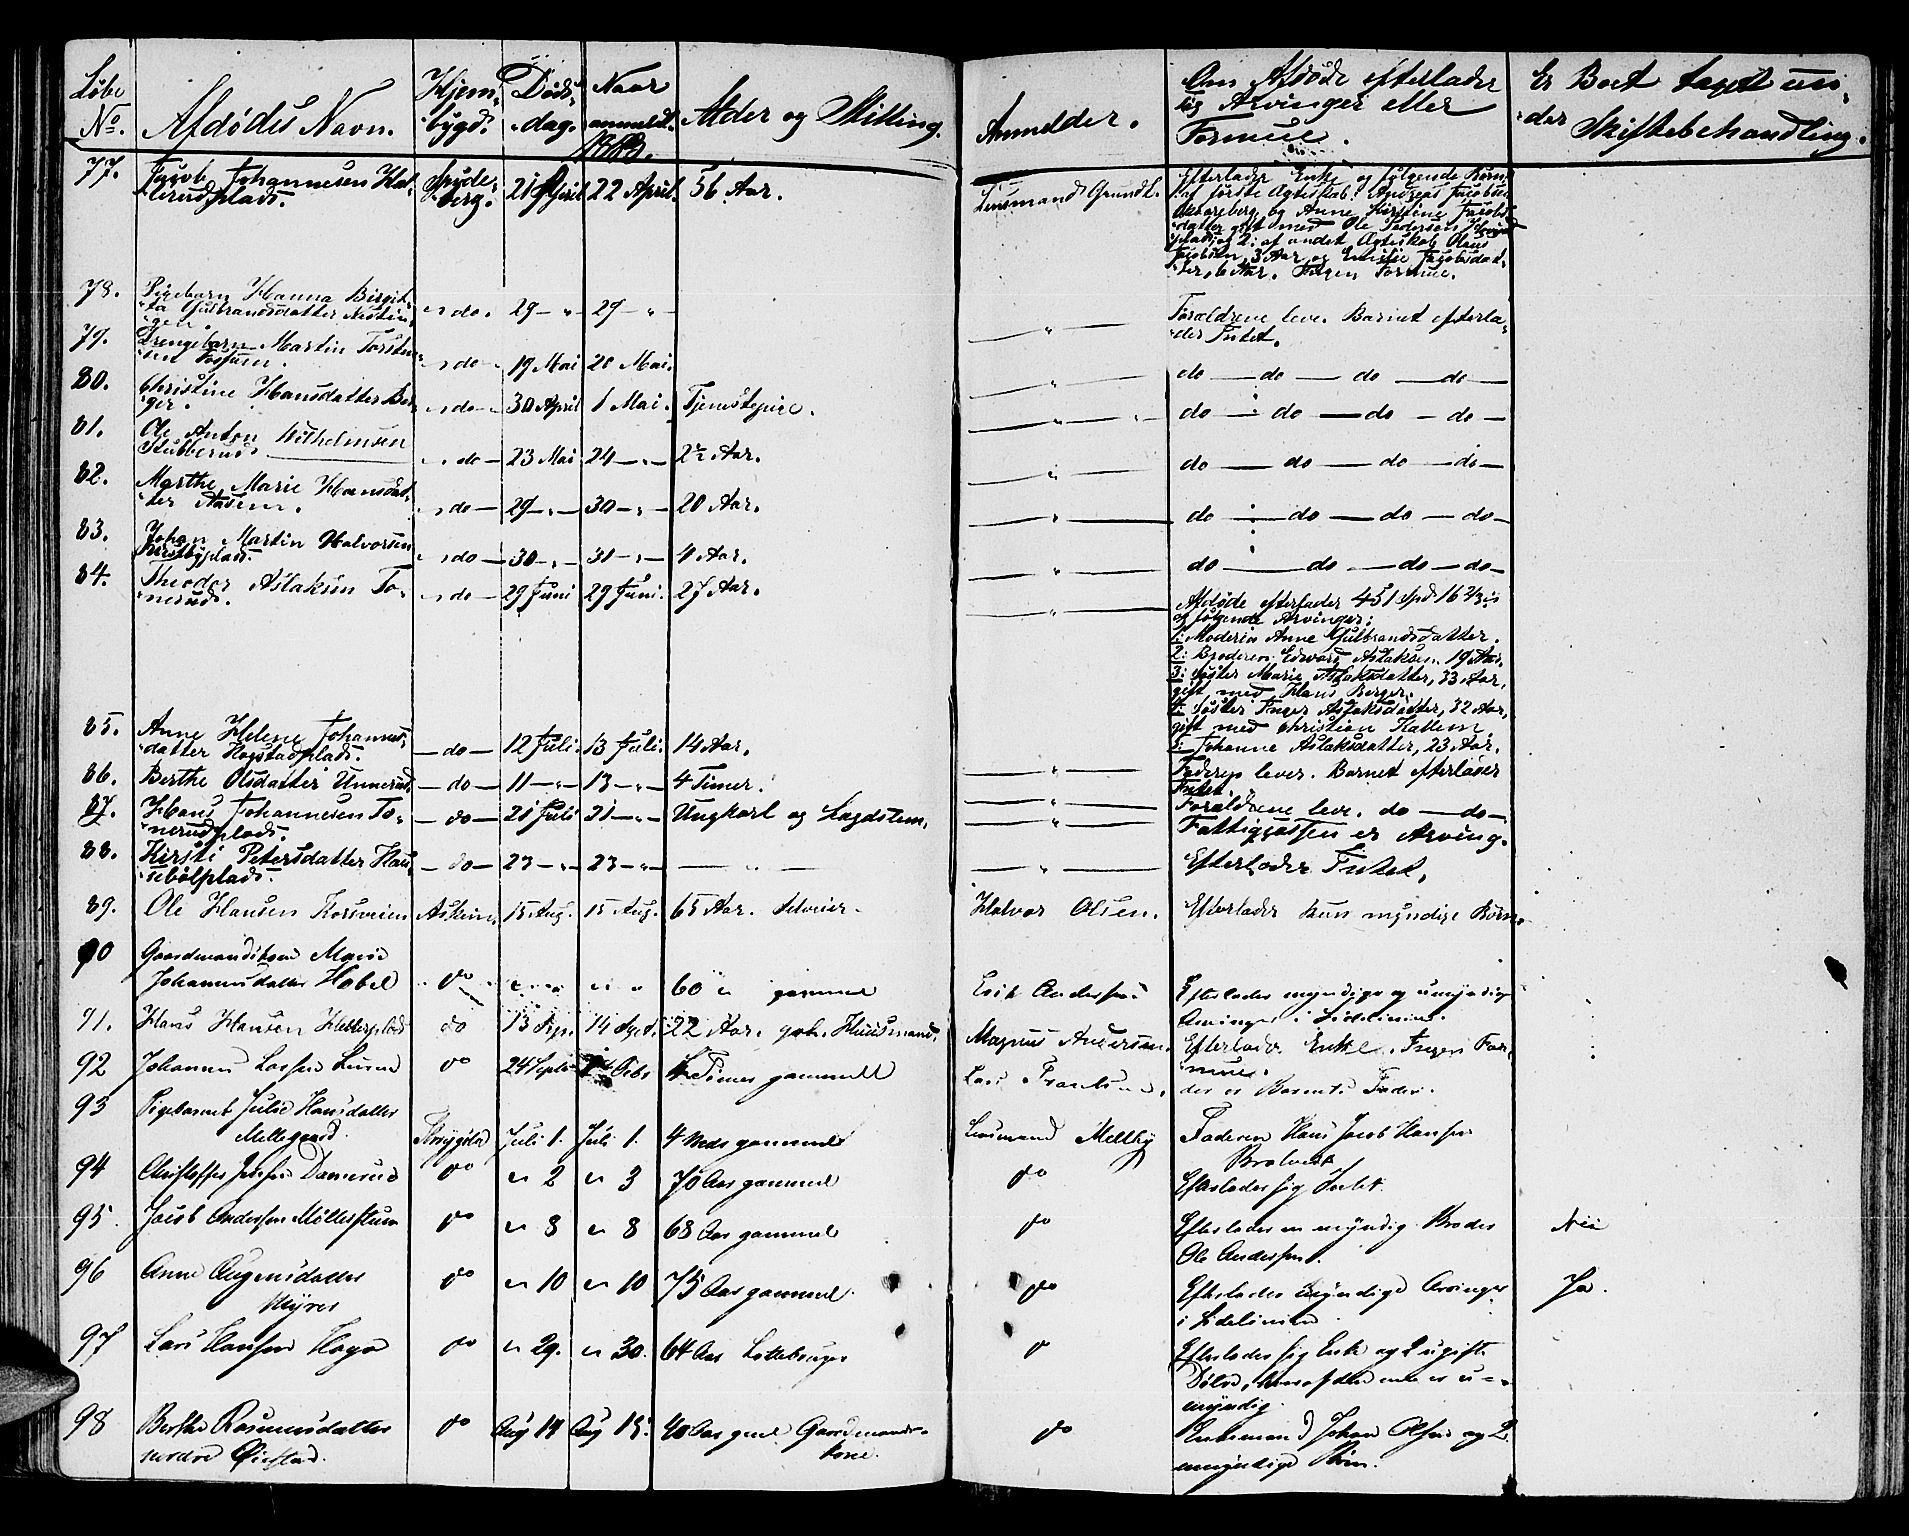 Løbe No. Afdødes Navn. Hjem-bygd. Døds-dag. Naar anmeldt. Alder og Stilling. Anmelder. Om Afdøde efterlader sig Arvinger eller Formue. Er Boet taget un-der Skiftebehandling.
77. Jacob Johannesen Spyde-berg. 21 April 22 April. 56 Aar. Lensmand Grundt. Efterlader Enke og følgende Børn
af første Ægteskab: Andreas Jacobsen
og Anne Kirstine Jacobs-
datter gift med Ole Pedersen
2: af andet Ægteskab Olaus
Jacobsen, 3 Aar og Emilie Jacobsdat-
ter, 6 Aar. Ingen Formue.
78. Pigebarn Hanna Birgit-
ta Gulbrandsdatter - do. 29 - " 29 - " - " - Forældrene leve. Barnet efterla-
der Intet.
79. Drengebarn Martin Torsten-
sen Fossum. - do - 19 Mai 20 Mai. - " - do - do - do - do -
80. Christine Hansdatter Ber-
ger. - do - 30 April 1 Mai. Tjenestepige. - " - do - do - do - do -
81. Ole Anton Wilhelmsen
Stubberud. - do - 23 Mai 24 - " - 2½ Aar. - " - do - do - do - do -
82. Marthe Marie Hansdat-
ter Aasem. - do - 29 - " - 30 - " - 20 Aar. - " - do - do - do - do -
83. Johan Martin Halvorsen
- do - 30 - " - 31 - " - 4 Aar. - " - do - do - do - do -
84. Theodor Aslaksen To-
nerud. - do - 29 Juni 29 Juni. 27 Aar. - " - Afdøde efterlader 451 Spd 16
og følgende Arvinger:
1: Moderen Anne Gulbrandsdatter.
2: Broderen Edvard Aslaksen 19 Aar.
3: Søster Marie Aslaksdatter, 33 Aar,
gift med Hans Berger.
4: Søster Inger Aslaksdatter, 32 Aar,
gift med Christian Hallem
5: Johanne Aslaksdatter, 23 Aar.
85. Anne Helene Johannes-
datter Hogstadplads. - do - 12 Juli. 13 Juli. 14 Aar. - " - Faderen lever. Barnet efterlader
Intet.
86. Berthe Olsdatter Unnerud - do - 11 - " - 13 - " - 4 Timer. - " - Forældrene leve. do - do -
87. Hans Johannesen To-
nerudplads. - do - 21 Juli 21 - " - Ungkarl og Lægdslem. - " - Fattigkassen er Arving.
88. Kirsti Petersdatter Hau-
sebølplads. - do - 23 - " - 23 - " - - " - - " - Efterlader Intet.
89. Ole Hansen Korsveien Askim. 15 Aug. 15 Aug. 65 Aar. Selveier. Halvor Olsen. Efterlader kun myndige Børn.
90 Gaardmandskone Marie
Johannesdatter Habel do " " 60 " gammel Erik Andersen Efterlader myndige og umyndige
Arvinger i Sidelinien.
91. Hans Hansen do 13 Sep. 14 Sept. 22 Aar. Huusmand. Magnus Andersen. Efterlader Enke. Ingen For-
mue.
92 Johannes Larsen Lund do 24 Septbr Octbr 4 Timer gammelt Lars der er Barnets Fader.
93 Pigebarnet Julie Hansdatter
Mellegaard. Trøgstad Juli 1. Juli 1. 4 gammel Lensmand Mellby Faderen Hans Jacob Hansen
94 Christoffer Damerud do " 2 " 3 70 Aar gammel do Efterlader sig Intet.
95. Jacob Andersen Møllerstuen do " 8 " 8 68 Aar gammel do Efterlader en myndig Broder
Ole Andersen. Nei
96 Anne Augensdatter
Myrer do " 10 " 10 75 Aar gammel. do Efterlader myndige Arvinger
i Sidelinien. Ja.
97 Lars Hansen Haga do " 29. " 30. 64 Aar do Efterlader sig Enke og 2 ugifte
Døtre, hvoraf den ene er u-
myndig.
98 Berthe Rasmusdatter
nordre Øiestad. do Aug 14 Aug 15. 40 Aar gml. Gaardmands-
kone. do Enkemand Johan Olsen og 2
umyndige Børn.